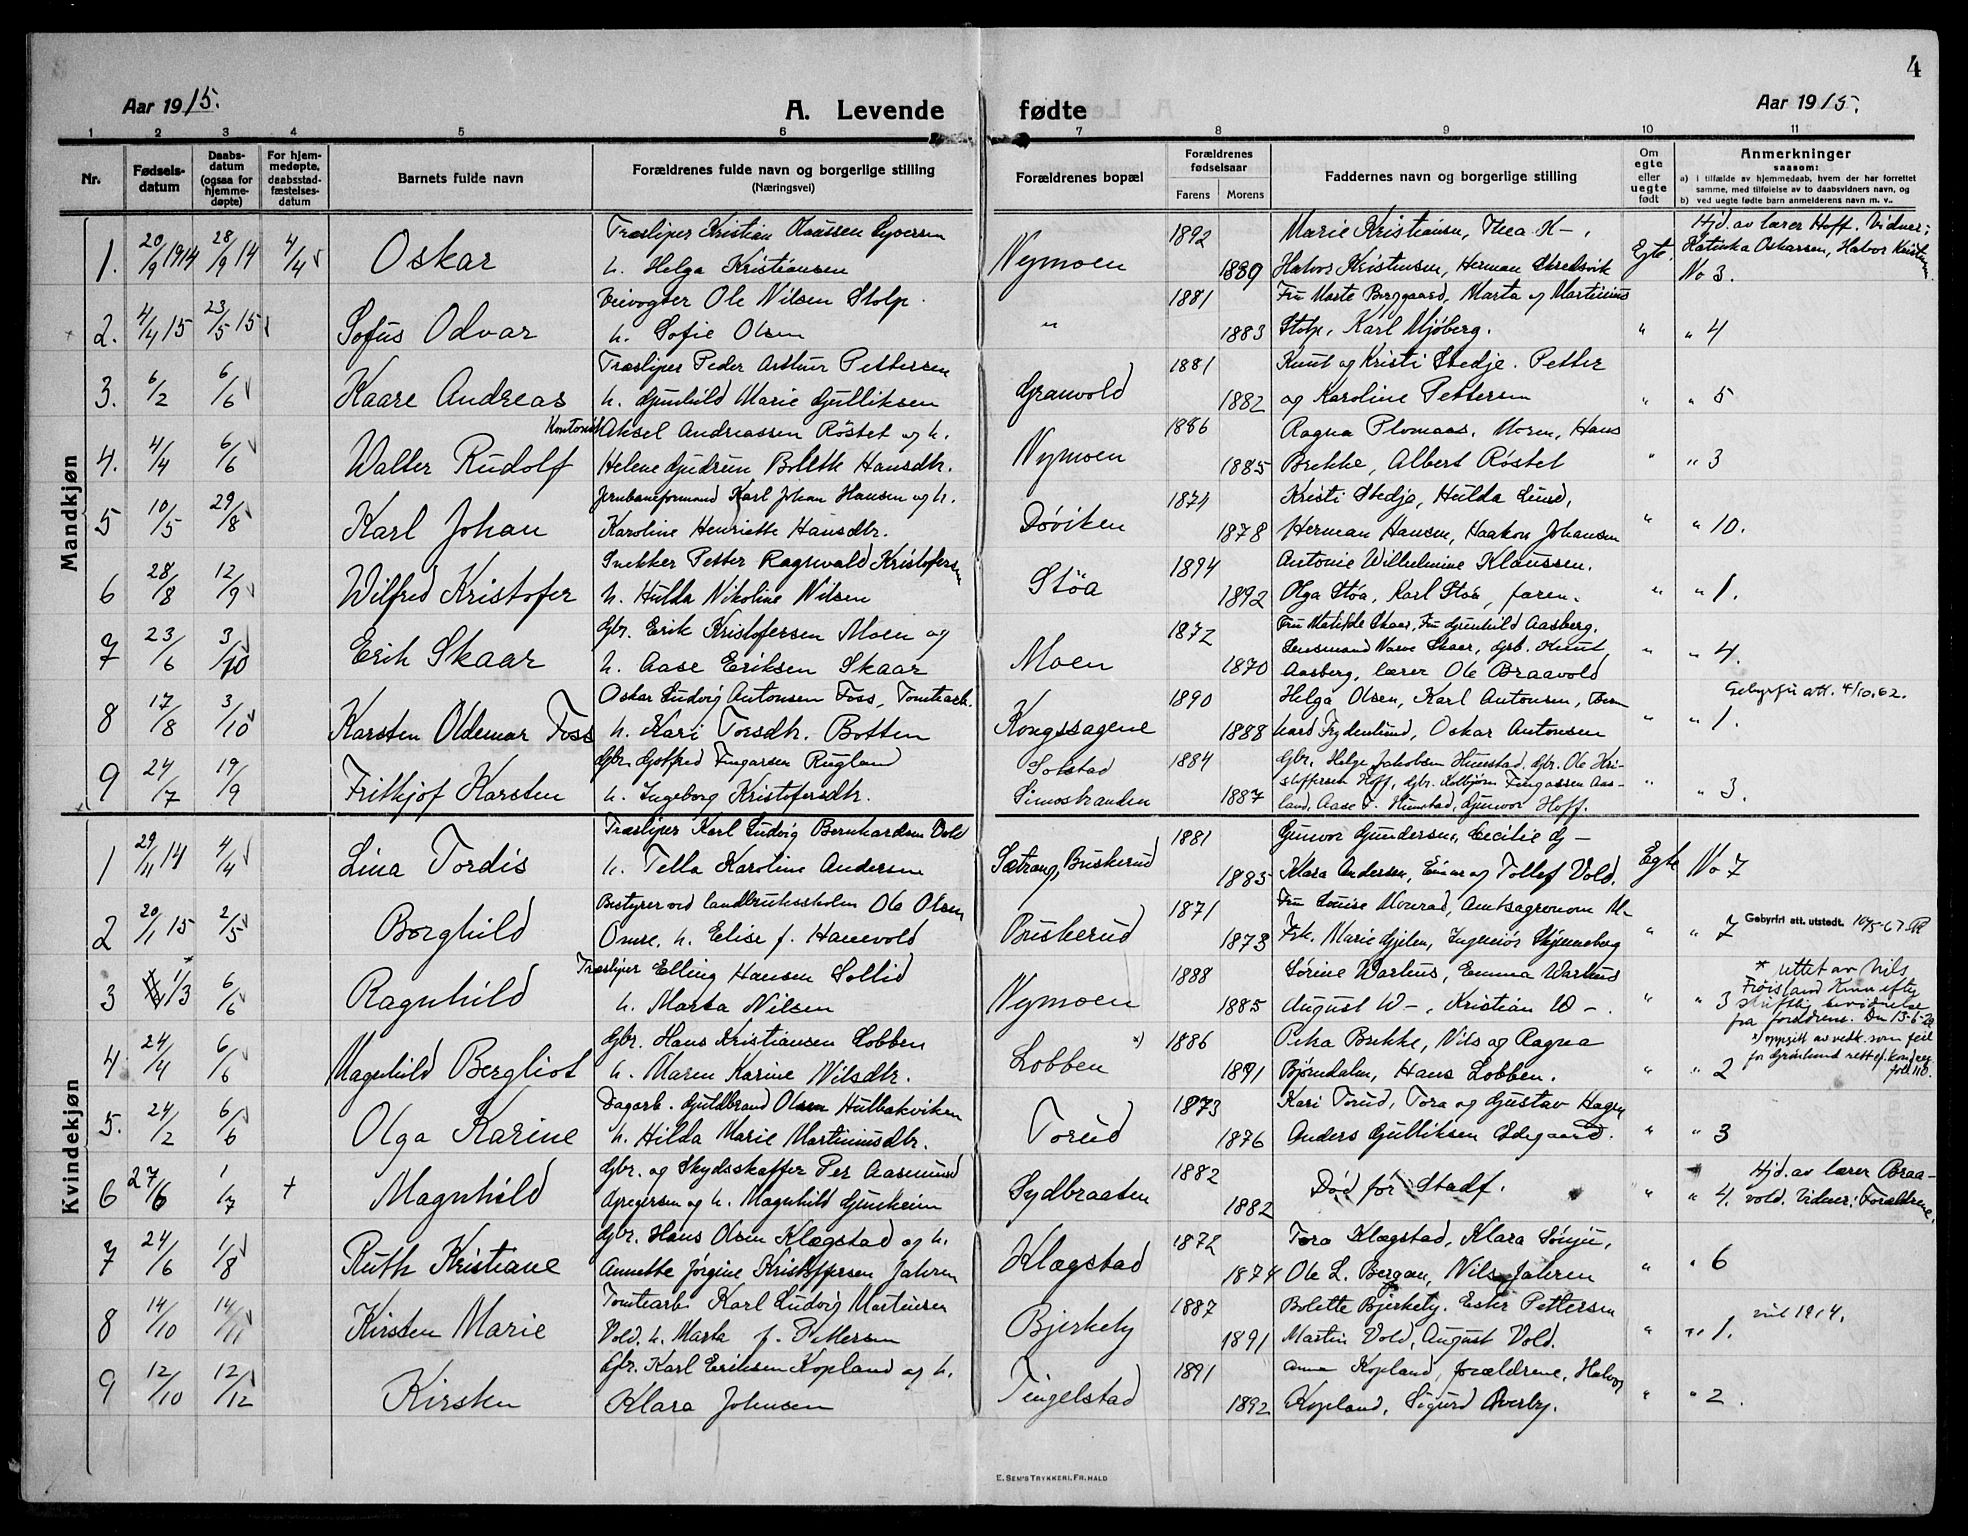 4
Aar 1915. A. Levende fødte Aar 1915.
1 2 3 4 5 6 7 8 9 10 11
Nr.
Fødsels-
datum
Daabs-
datum
(ogsaa for
hjemme-
døpte)
For hjem-
medøpte,
daabsstad-
fæstelses-
datum
Barnets fulde navn
Forældrenes fulde navn og borgerlige stilling
(Næringsvei)
Forældrenes bopæl
Forældrenes
fødselsaar
Farens Morens
Faddernes navn og borgerlige stilling
Om
egte
eller
uegte
født
Anmerkninger
saasom:
a) i tilfælde av hjemmedaab, hvem der har forrettet
samme, med tilføielse av to daabsvidners navn, og
b) ved uegte fødte barn anmelderens navn m. v..
Mandkjøn
1. 20/9 1914 28/9 14 4/4 Oskar
Træsliper Kristian
h. Helga Kristiansen
Nymoen 1892 1889
Marie Kristiansen, Thea K-,
Halvor Kristensen, Herman
Egte.
Hjd. av lærer Hoff. Vidner:
Katinka Oskarsen, Halvor
No 3.
2. 4/4 15 23/5 15 Sofus Odvar
Ole Nilsen Stolp.
h. Sofie Olsen
" 1881 1883
Fru Marte Berggaard, Marta og Martinius
Stolp, Karl Mjøberg.
" " 4
3. 6/2 6/6 Kaare Andreas
Træsliper Peder Arthur Pettersen
h. Gunhild Marie Gulliksen
Granvold 1881 1882
Knut og Kristi Stedje. Petter
og Karoline Pettersen
" " 5
4. 4/4 6/6 Walter Rudolf
Aksel Andreassen Røstet og h.
Helene Gudrun Bolette Hansdtr.
Nymoen 1886 1885
Ragna Plomaas, Moren, Hans
Brekke, Albert Røstet
" " 3
5 10/5 29/8 Karl Johan
Jernbaneformand Karl Johan Hansen og h.
Karoline Henriette Hansdtr.
Døviken 1874 1878
Kristi Stedje, Hulda Lund,
Herman Hansen, Haakon Johansen
" " 10.
6 28/8 12/9 Wilfred Kristofer
Snekker Petter Ragnvald Kristofersen
h. Hulda Nikoline Nilsen
Støa 1894 1892
Antonie Wilhelmine Klaussen.
Olga Støa, Karl Støa, faren.
" " 1.
7 23/6 3/10 Erik Skaar
Gbr. Erik Kristofersen Moen og
h. Aase Eriksen Skaar
Moen 1872 1870
Fru Matilde Skaar, Fru Gunhild Aasberg.
Lensmand Skaar, Gbr. Knut
Aasberg, lærer Ole Braavold
" " 4.
8 17/8 3/10 Karsten Oldemar Foss
Oskar Ludvig Antonsen Foss, Tomtearb.
h. Kari Torsdtr. Botten
Kongssagene 1890 1888
Helga Olsen, Karl Antonsen, Bern
hard Frydenlund, Oskar Antonsen
" " 1.
Gebyrfri att. 4/10.62.
9 24/7 19/9 Frithjof Karsten
Gbr. Gotfred Fingarsen Rugland
h. Ingeborg Kristofersdtr.
Solstad
Simostranden 1884 1887
Gbr. Helge Jakobsen Hunstad, Gbr. Ole Kri-
stoffersen Hoff, Gbr. Kolbjørn Fingarsen Aas-
land, Aase T. Hunstad, Gunvor Hoff.
" " 3.
Kvindekjøn
1 29/11 14 4/4 Lina Tordis
Træsliper Karl Ludvig Bernhardsen Vold
h. Tella Karoline Andersen
Sætrang, Buskerud 1881 1885
Gunvor Gundersen, Cecilie G-
Klara Andersen, Einar og Tollef Vold.
Egte No 7
2 20/1 15 2/5 Borghild
Bestyrer ved landbruksskolen Ole Olsen
Omre, h. Elise f. Hanevold
Buskerud 1871 1873
Fru Louise Monrad, Amtsagronom M-
Frk. Marie Gjelen, Ingeniør Skjønneberg
" " 7 Gebyrfri att. utstedt. 10/5-67
3 1/3 * 6/6 Ragnhild
Træsliper Elling Hansen Sollid
h. Marta Nilsen
Nymoen 1888 1885
Sørine Warhus, Emma Warhus
August W-, Kristian W-.
" " 3
* rettet av Nils
Frøisland efter
skriftlig bevidnelse
fra foreldrene. Den 13-6-
4. 24/4 6/6 Magnhild Bergliot
Gbr. Hans Kristiansen Lobben
h. Maren Karine Nilsdtr.
Lobben x) 1886 1891
Petra Brekke, Nils og Ragna
Bjørndalen, Hans Lobben.
" " 2
x) oppgitt av vedk. som feil
for Grønlund
5. 24/2 6/6 Olga Karine
Dagarb. Guldbrand Olsen Hulbakviken
h. Hilda Marie Martiniusdtr.
Torud 1873 1876
Kari Torud, Tora og Gustav Hagen
Anders Gulliksen Ødegaard.
" " 3
6 27/6 1/7 + Magnhild
Gbr. og Skydsskaffer Per Aasmund
og h. Magnhild Gunheim
Sydbraaten 1882 1882
Død før Stadf.
" " 4.
Hjd. av lærer Braa-
vold. Vidner: Forældrene.
7 24/6 1/8 Ruth Kristiane
Gbr. Hans Olsen Klægstad og h.
Annette Jørgine Kristoffersen Jahren
Klægstad 1872 1874
Tora Klægstad, Klara Sønju,
Ole L. Bergan, Nils Jahren
" " 6
8 14/10 14/11 Kirsten Marie
Tomtearb. Karl Ludvig Martinsen
Vold. h. Marta f. Pettersen
Bjerkely 1887 1891
Bolette Bjerkely, Ester Pettersen
Martin Vold, August Vold.
" " 1. 1914.
9 12/10 12/12 Kirsten
Gbr. Karl Eriksen Kopland og h.
Klara Johnsen
Tingelstad 1891 1892
Anna Kopland, forældrene, Halvor
Kopland, Sigurd Overby.
" " 2.
E. SEM'S TRYKKERI, FR.HALD